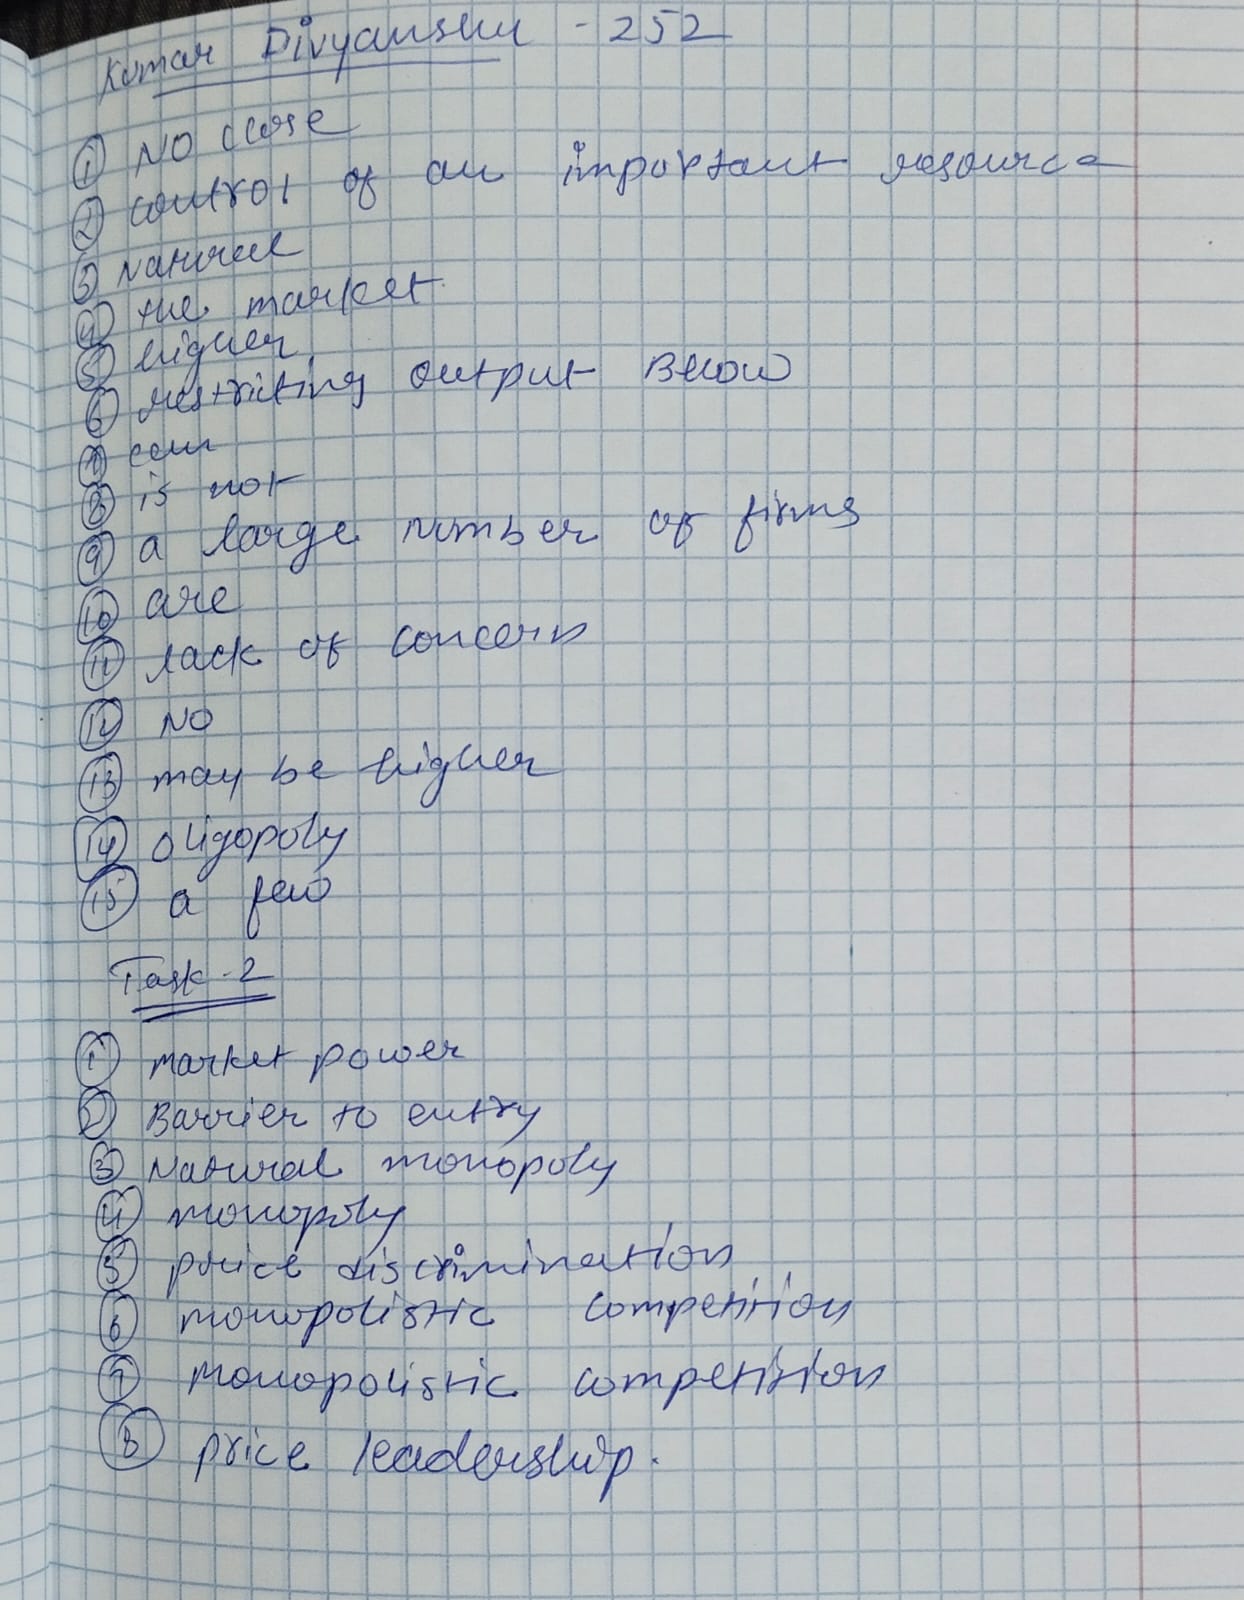 Kumar Divyanshu - 252
① NO close
② control of an important resource
③ Natural
④ the market
⑤ higher
⑥ restricting output Below
⑦ can
⑧ is not
⑨ a large number of firms
⑩ are
⑪ lack of concern
⑫ NO
⑬ may be higher
⑭ oligopoly
⑮ a few
Task - 2
① market power
② Barrier to entry
③ Natural monopoly
④ monopoly
⑤ price discrimination
⑥ monopolistic competition
⑦ monopolistic competition
⑧ price leadership.